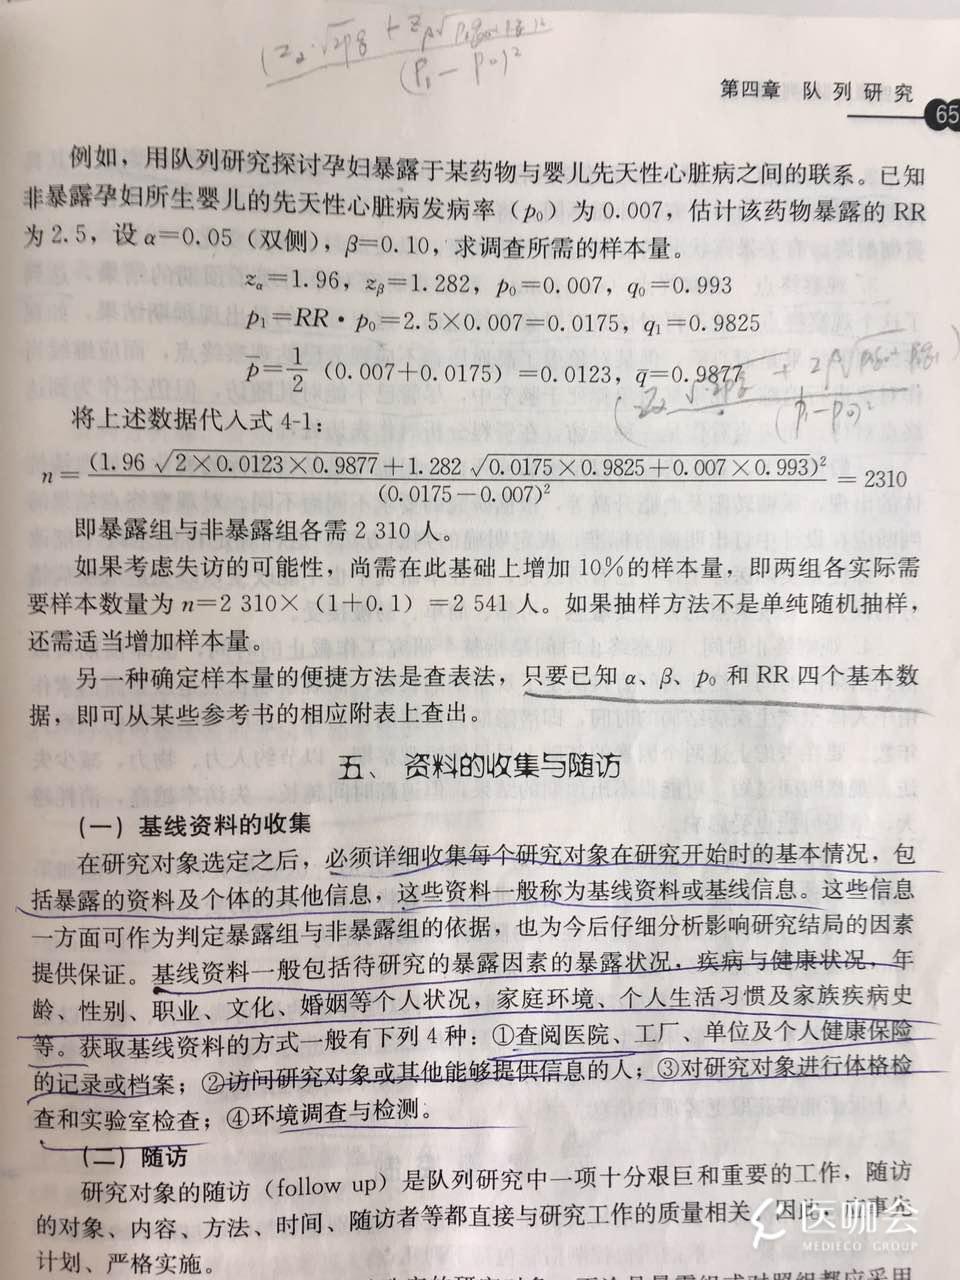 (z_α·√2p̄q̄ + z_β√p₁q₁
(p₁-p₀)²
第四章 队列研究
65
例如，用队列研究探讨孕妇暴露于某药物与婴儿先天性心脏病之间的联系。已知
非暴露孕妇所生婴儿的先天性心脏病发病率（p₀）为 0.007，估计该药物暴露的 RR
为 2.5，设 α=0.05（双侧），β=0.10，求调查所需的样本量。
z_α=1.96，z_β=1.282，p₀=0.007，q₀=0.993
p₁=RR·p₀=2.5×0.007=0.0175，q₁=0.9825
p̄=1/2（0.007+0.0175）=0.0123，q̄=0.9877
(p₁-p₀)²
将上述数据代入式 4-1：
n=(1.96 √2×0.0123×0.9877+1.282 √0.0175×0.9825+0.007×0.993)²/(0.0175-0.007)²=2310
即暴露组与非暴露组各需 2 310 人。
如果考虑失访的可能性，尚需在此基础上增加 10%的样本量，即两组各实际需
要样本数量为 n=2 310×（1+0.1）=2 541 人。如果抽样方法不是单纯随机抽样，
还需适当增加样本量。
另一种确定样本量的便捷方法是查表法，只要已知 α、β、p₀ 和 RR 四个基本数
据，即可从某些参考书的相应附表上查出。
五、资料的收集与随访
（一）基线资料的收集
在研究对象选定之后，必须详细收集每个研究对象在研究开始时的基本情况，包
括暴露的资料及个体的其他信息，这些资料一般称为基线资料或基线信息。这些信息
一方面可作为判定暴露组与非暴露组的依据，也为今后仔细分析影响研究结局的因素
提供保证。基线资料一般包括待研究的暴露因素的暴露状况，疾病与健康状况，年
龄、性别、职业、文化、婚姻等个人状况，家庭环境、个人生活习惯及家族疾病史
等。获取基线资料的方式一般有下列 4 种：①查阅医院、工厂、单位及个人健康保险
的记录或档案；②访问研究对象或其他能够提供信息的人；③对研究对象进行体格检
查和实验室检查；④环境调查与检测。
（二）随访
研究对象的随访（follow up）是队列研究中一项十分艰巨和重要的工作，随访
的对象、内容、方法、时间、随访者等都直接与研究工作的质量相关，因此，应事先
计划、严格实施。
医咖会
MEDIECO GROUP